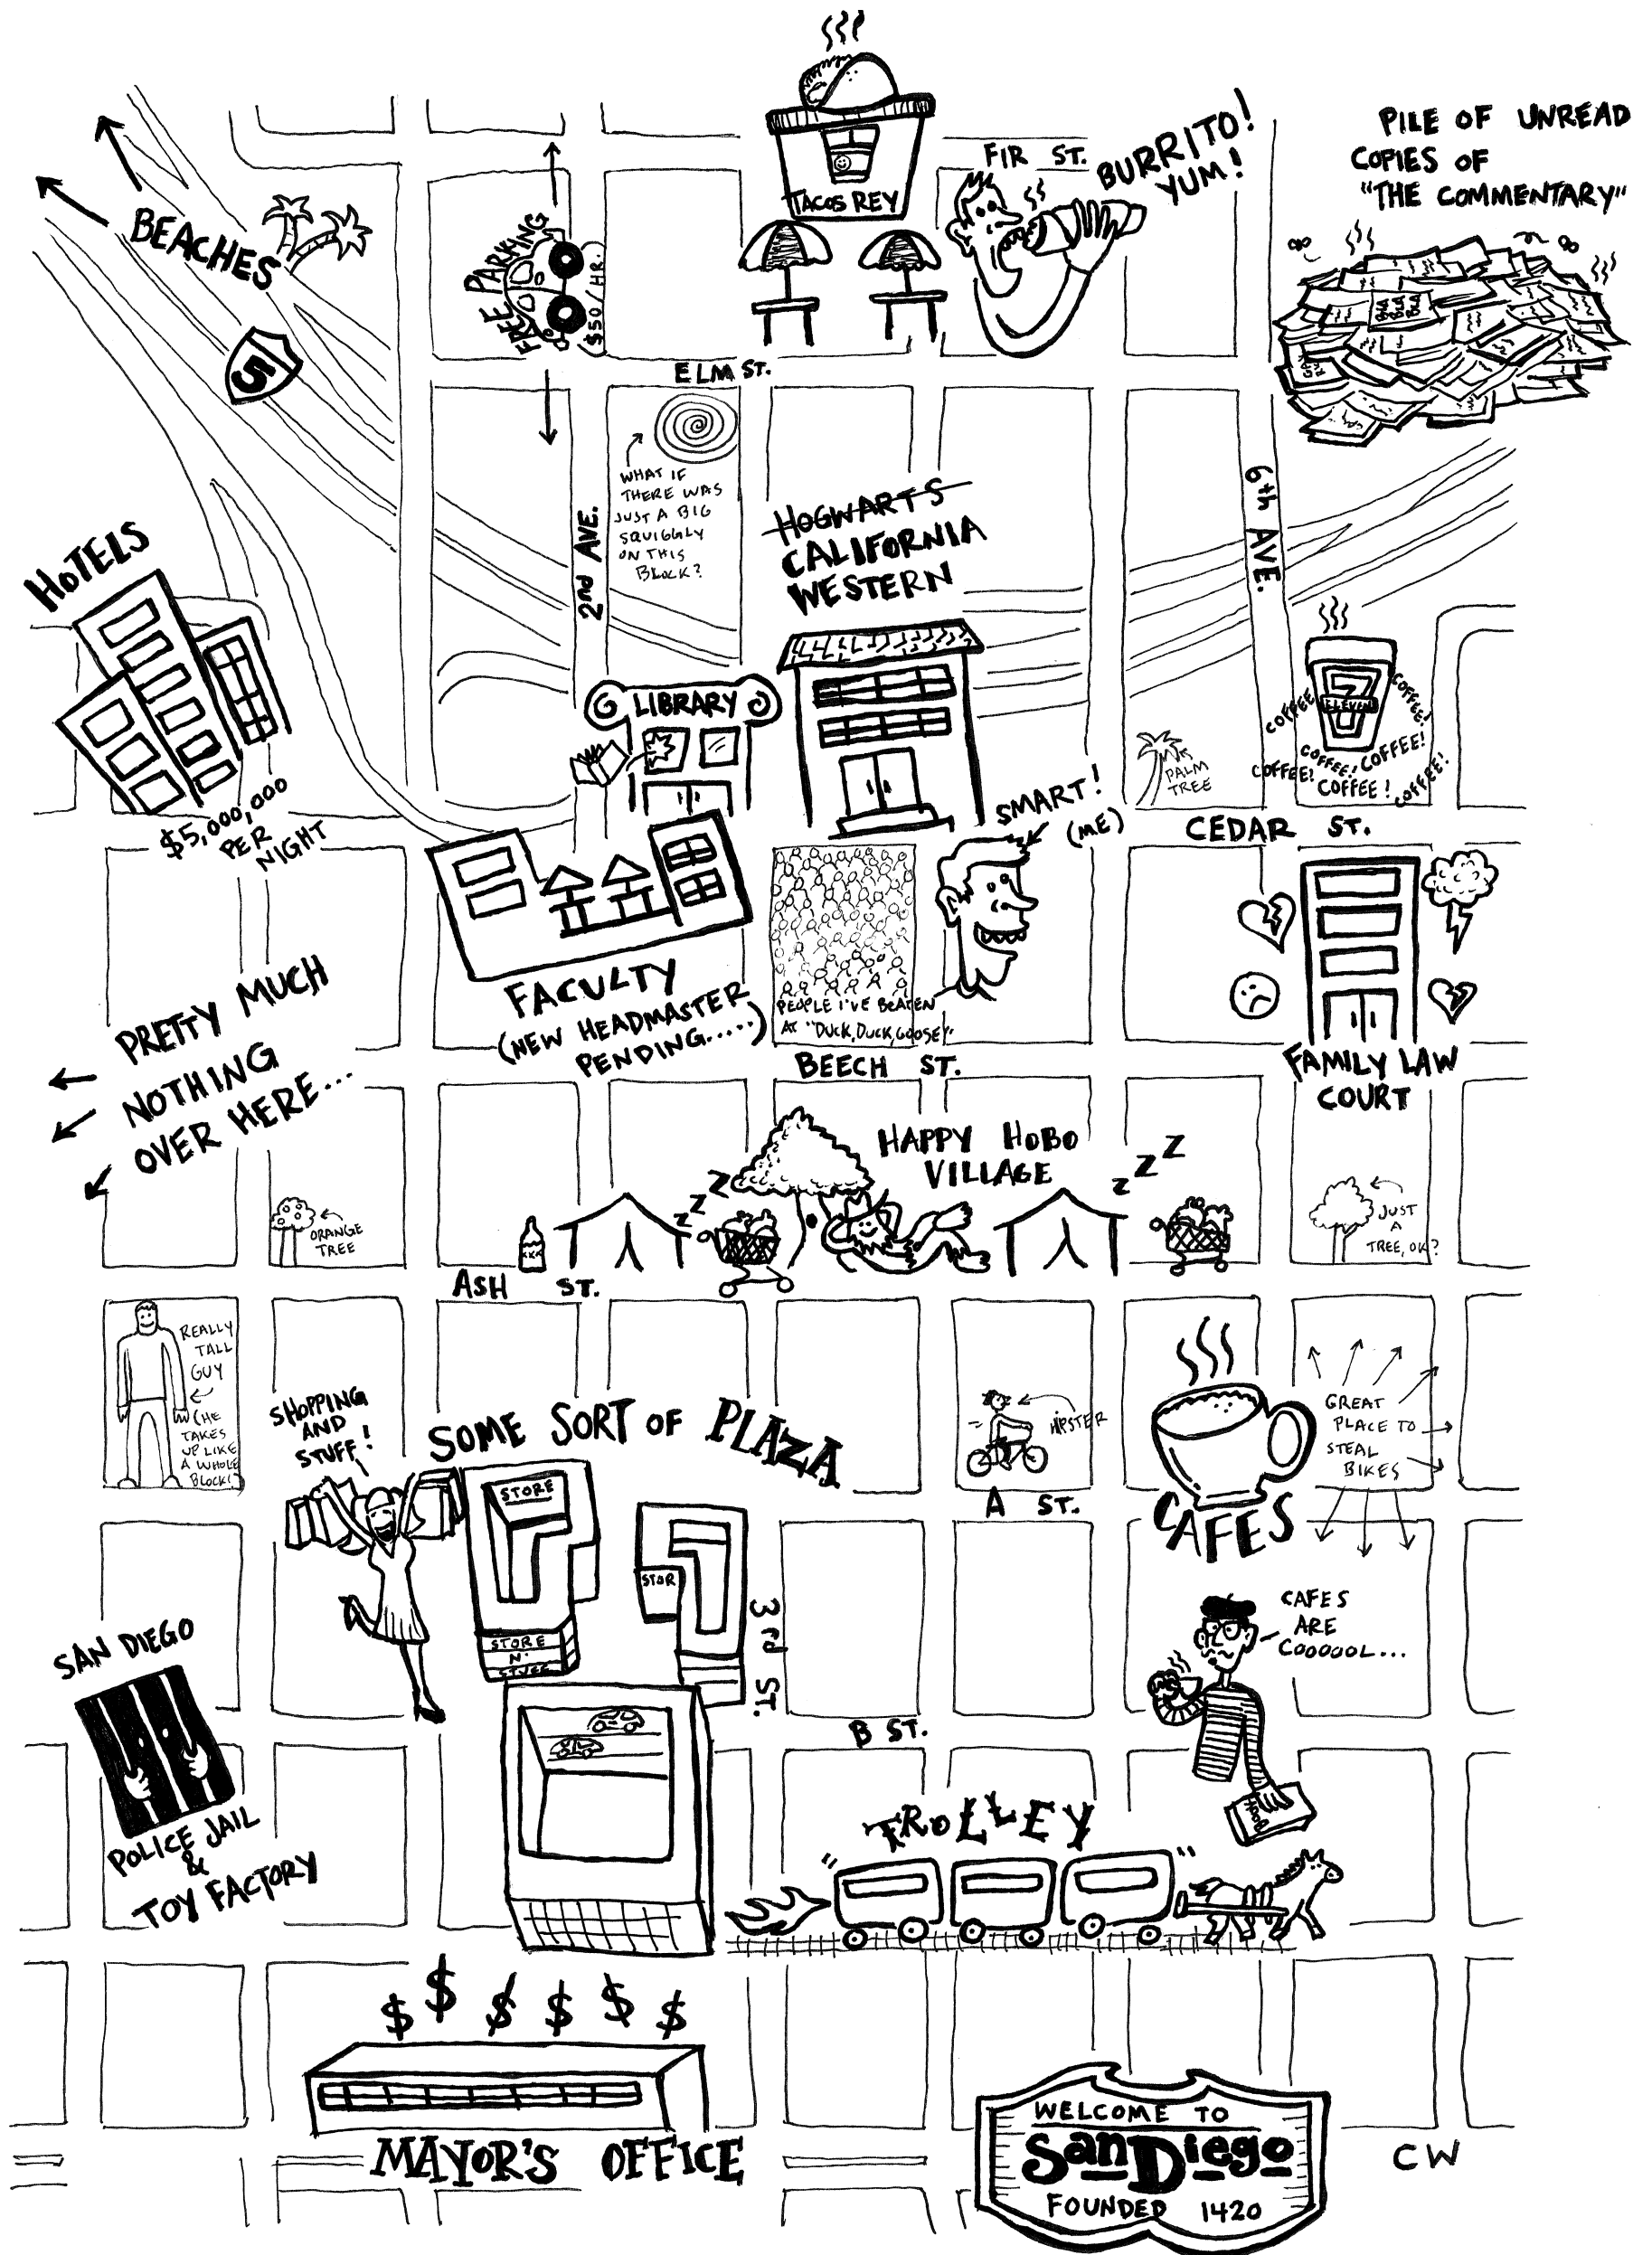 TACOS REY
FIR ST.
BURRITO!
YUM!
PILE OF UNREAD
COPIES OF
"THE COMMENTARY"
BLA
BLA
BLA
BEACHES
5
FREE PARKING
($50/HR.)
ELM ST.
WHAT IF
THERE WAS
JUST A BIG
SQUIGGLY
ON THIS
BLOCK?
2nd AVE.
6th AVE.
HOGWARTS
CALIFORNIA
WESTERN
HOTELS
$5,000,000
PER
NIGHT
LIBRARY
PALM
TREE
7
ELEVEN
COFFEE
COFFEE!
COFFEE!
COFFEE!
COFFEE!
COFFEE!
COFFEE!
CEDAR ST.
SMART!
(ME)
FACULTY
(NEW HEADMASTER
PENDING.....)
PEOPLE I'VE BEATEN
AT "DUCK, DUCK, GOOSE!"
BEECH ST.
FAMILY LAW
COURT
PRETTY MUCH
NOTHING
OVER HERE...
HAPPY HOBO
VILLAGE
Z Z Z
Z Z Z
XXX
ORANGE
TREE
JUST
A
TREE, OK?
ASH ST.
REALLY
TALL
GUY
(HE
TAKES
UP LIKE
A WHOLE
BLOCK!)
SHOPPING
AND
STUFF!
SOME SORT OF PLAZA
STORE
STORE
N'
STUFF
STOR
HIPSTER
A ST.
CAFES
GREAT
PLACE TO
STEAL
BIKES
3rd ST.
CAFES
ARE
COOOOOL...
B ST.
SAN DIEGO
POLICE JAIL
&
TOY FACTORY
"TROLLEY"
$ $ $ $ $ $
MAYOR'S OFFICE
WELCOME TO
San Diego
FOUNDED 1420
CW